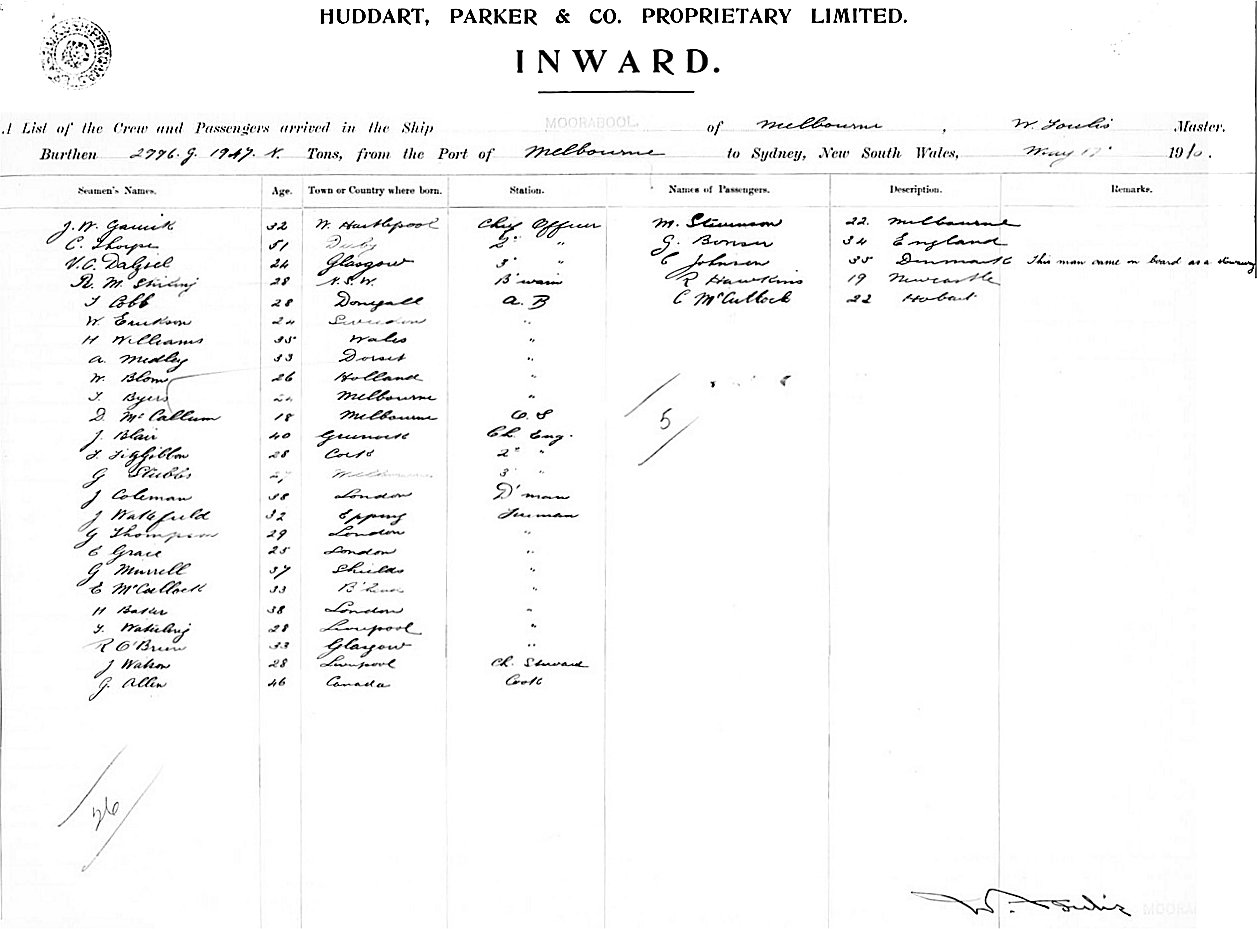 HUDDART, PARKER & CO. PROPRIETARY LIMITED.
INWARD.
A List of the Crew and Passengers arrived in the Ship MOORABOOL of Melbourne, W. Foulis Master.
Burthen 2776. G. 1947. N. Tons, from the Port of Melbourne to Sydney, New South Wales, May 1910.
Seamen's Names. Age. Town or Country where born. Station. Names of Passengers. Description. Remarks.
J. W. 32 W. Hartlepool Chief Officer M. Stevenson 22. Melbourne
C. Thorpe 51 2" " G. Bonser 34 England
V. C. Dalziel 24 Glasgow 3" " C Johnson 35 Denmark This man came on board as a stowaway
R. M. Stirling 28 N.S.W. B'swain R Hawkins 19 Newcastle
T Cobb 28 Donegall A. B C McCullock 22 Hobart
W. Erickson 24 Sweeden "
H Williams 35 Wales "
A. Medley 33 Dorset "
W. Blom 26 Holland "
T. Byers Melbourne "
D. McCallum 18 Melbourne O.S
J. Blair 40 Greenock Ch. Eng.
T. FitzGibbon 28 Cork 2" "
G Stubbs 27 Melbourne 3" "
J Coleman 38 London D'man
J Wakefield 32 Epping Fireman
G Thompson 29 London "
E Grace 25 London "
G Murrell 37 Shields "
E McCullock 33 "
H Baker 38 London "
T. Waterling 28 Liverpool "
R O'Brien 33 Glasgow "
J Watson 28 Liverpool Ch. Steward
G. Allen 46 Canada Cook
5
26
W. Foulis